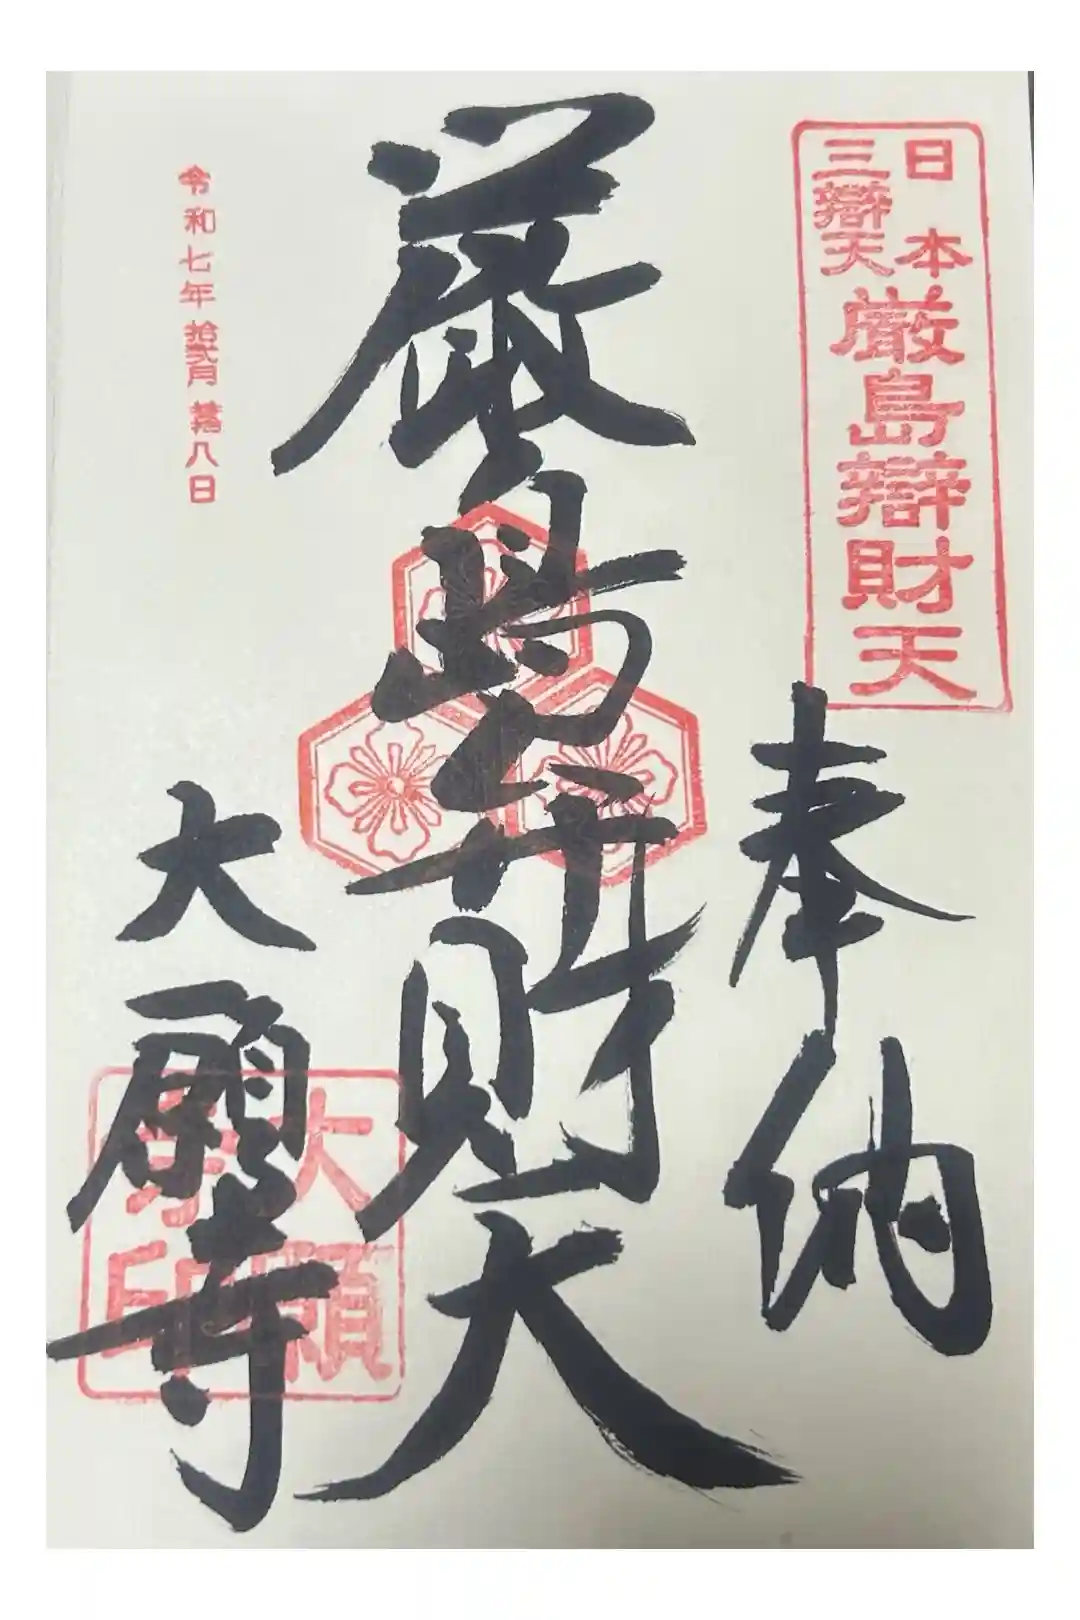 日本
三辯天
厳島辯財天
奉納
厳島弁財天
大願寺
大願
寺印
令和七年拾弐月拾八日